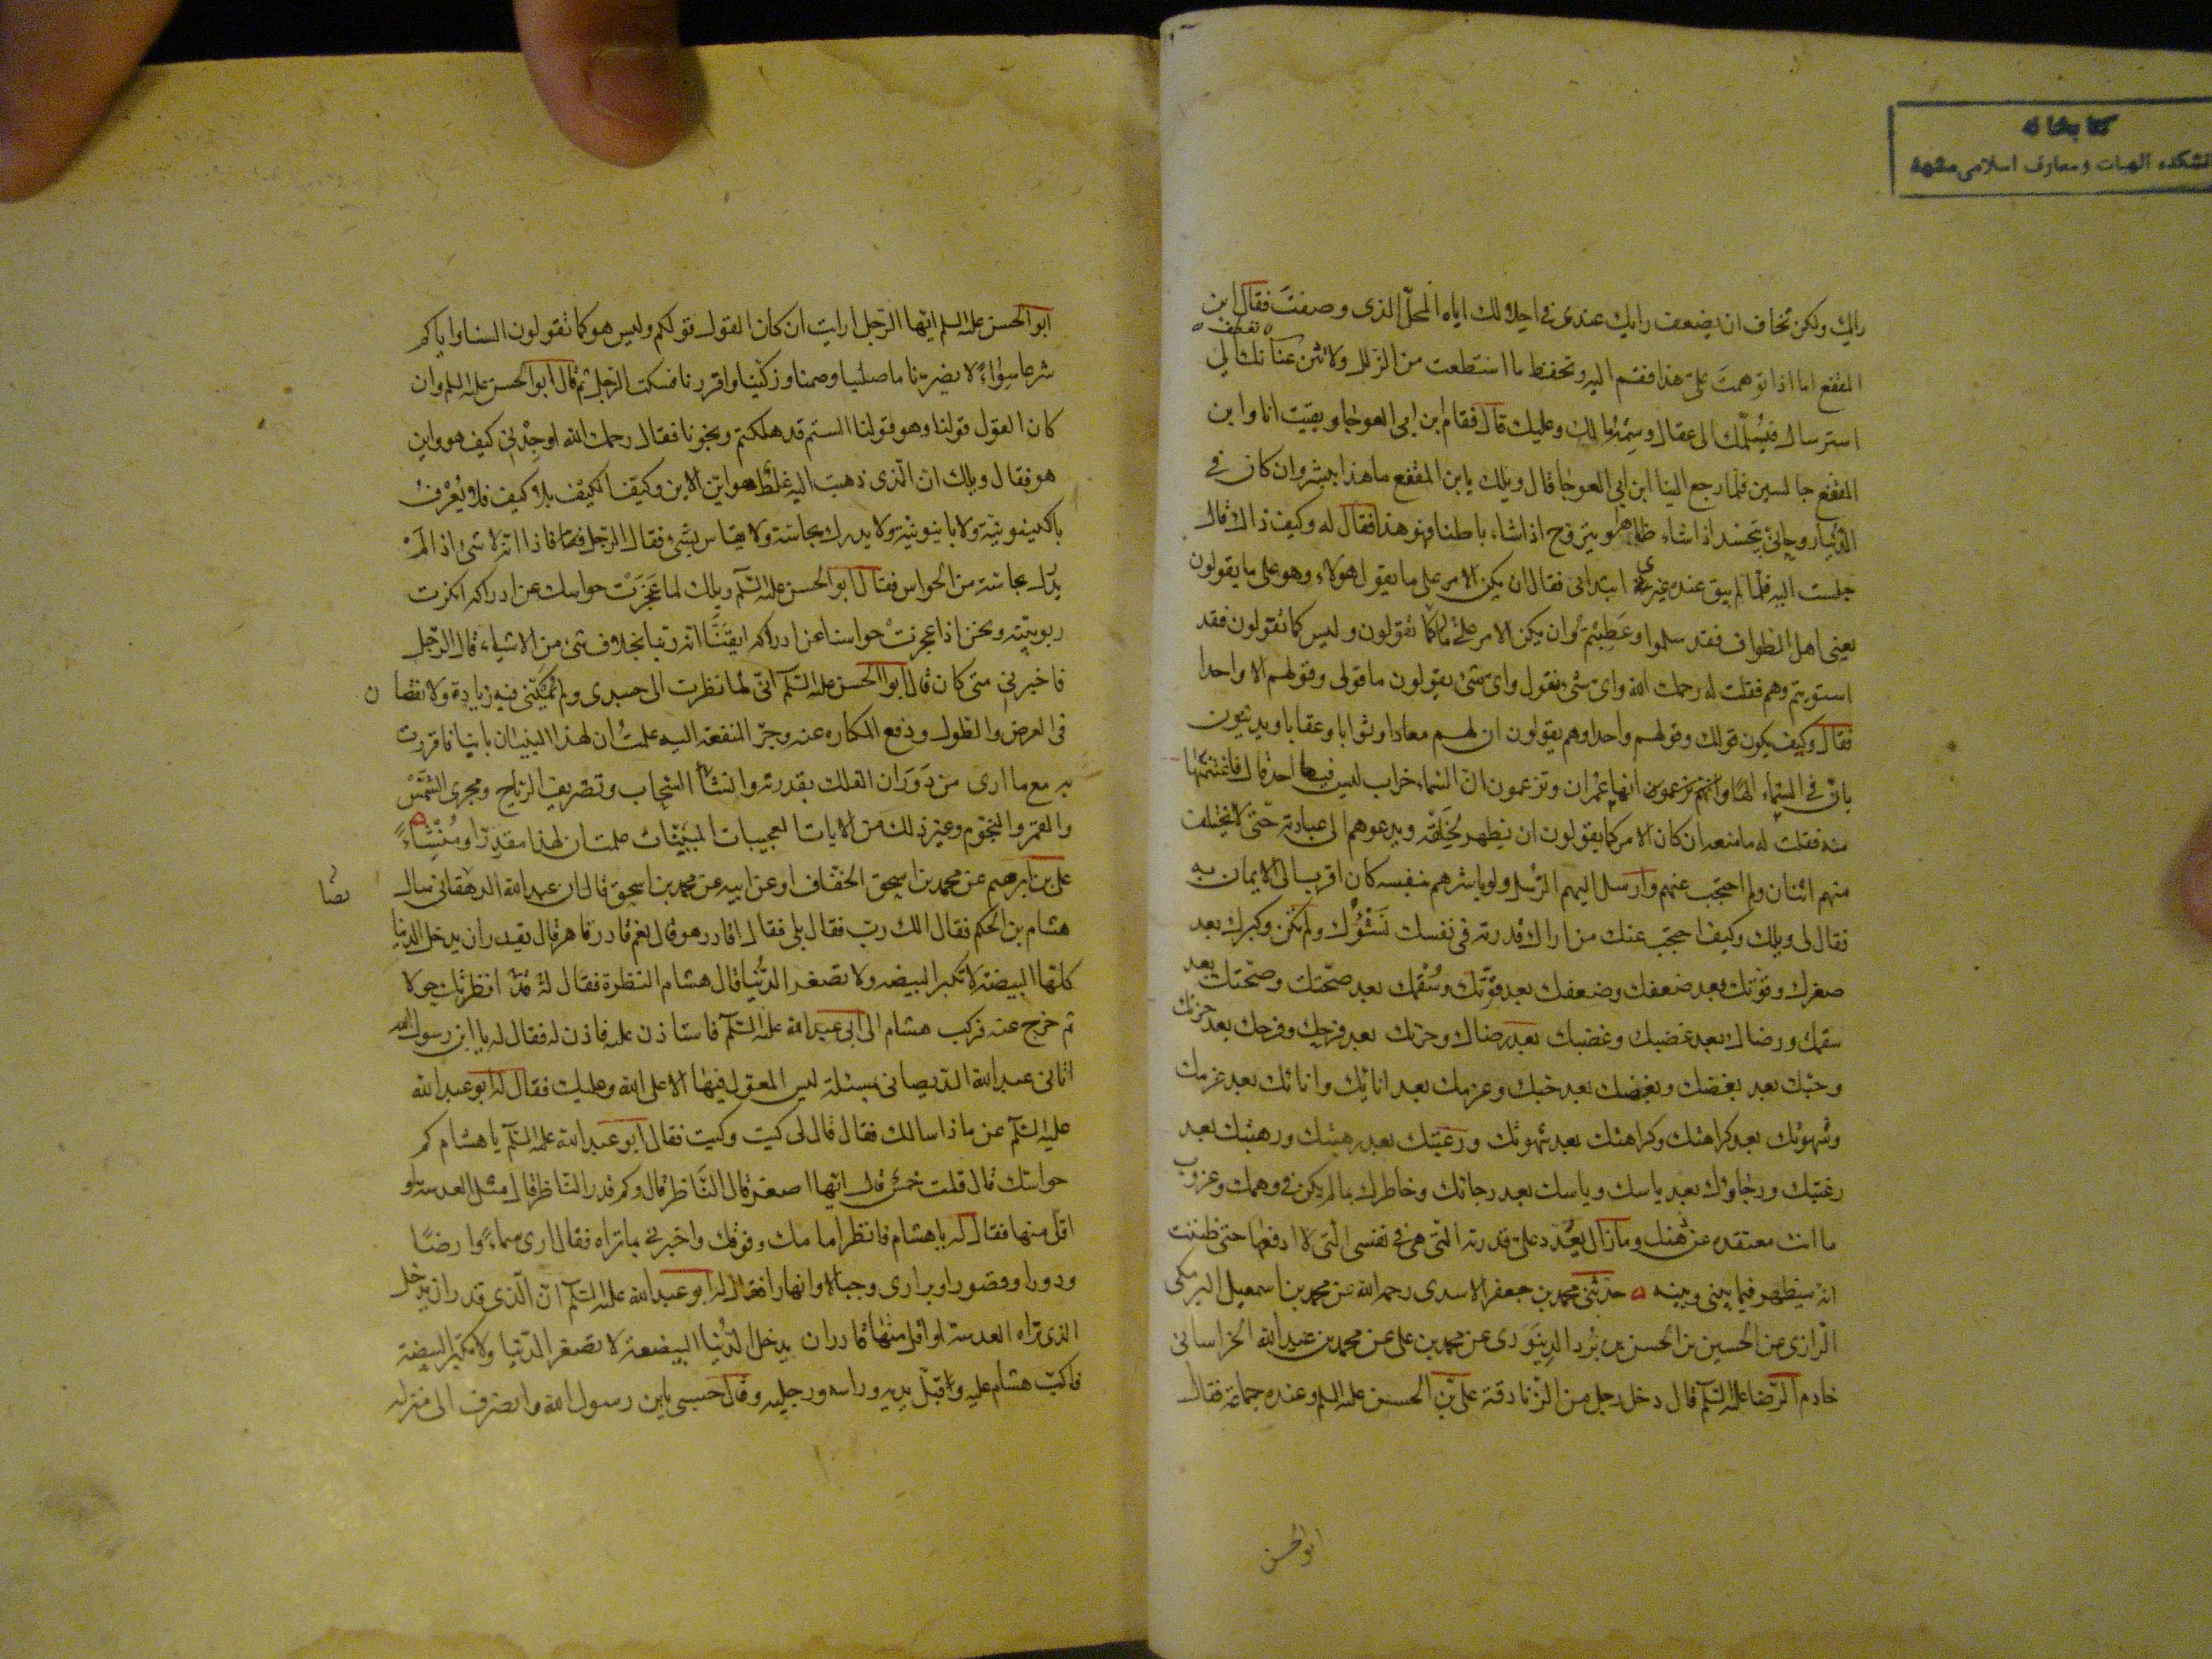 كتابخانه
نشكده الهيات ومعارف اسلامی مشهد
رايك ولكن تخاف ان يضعف رايك عندی فی احلالك اياه المحلّ الذی وصفتَ فقال ابن
المقفع اما اذا توهمت علیّ هذا فقم اليه وتحفظ ما استطعت من الزلل ولا تثن عنانك الی
استرسال فيُسلّمك الی عقال وسِمْه ما لك وعليك قال فقام ابن ابی العوجا وبقيت انا وابن
المقفع جالسين فلما رجع الينا ابن ابی العوجا قال ويلك يابن المقفع ما هذا ببشر وان كان فی
الدّنيا روحانیّ يتجسد اذا شاء ظاهرا ويتروح اذا شاء باطنا فهو هذا فقال له وكيف ذاك قال
جلست اليه فلمّا لم يبق عنده غيری ابتدانی فقال ان يكن الامر علی ما يقول هؤلاء وهو علی ما يقولون
يعنی اهل الطواف فقد سلموا وعَطِبْتم وان يكن الامر علی ما تقولون وليس كما تقولون فقد
استويتم وهم فقلت له رحمك الله وایّ شیء نقول وایّ شیء يقولون ما قولی وقولهم الا واحدا
فقال وكيف يكون قولك وقولهم واحدا وهم يقولون ان لهم معادا وثوابا وعقابا ويدينون
بانّ فی السّماء الهًا وانّها عُمْران وتزعمون انّ السّماء خراب ليس فيها احد قال فاغتنمتها
منه فقلت له ما منعه ان كان الامر كما يقولون ان يظهر لخَلقه ويدعوهم الی عبادته حتّی لا يختلف
منهم اثنان ولم احتجب عنهم وارسل اليهم الرّسل ولو باشرهم بنفسه كان اقرب الی الايمان به
فقال لی ويلك وكيف احتجب عنك من اراك قدرته فی نفسك نَشْوُءَك ولم تكن وكبرك بعد
صغرك وقوّتك بعد ضعفك وضعفك بعد قوّتك وسُقْمك بعد صحّتك وصحّتك بعد
سقمك ورضاك بعد غضبك وغضبك بعد رضاك وحزنك بعد فرحك وفرحك بعد حزنك
وحبّك بعد بغضك وبغضك بعد حبّك وعزمك بعد اناتك واناتك بعد عزمك
وشهوتك بعد كراهتك وكراهتك بعد شهوتك ورغبتك بعد رهبتك ورهبتك بعد
رغبتك ورجاءك بعد ياسك وياسك بعد رجائك وخاطرك بما لم يكن فی وهمك وعزوب
ما انت معتقده عن ذهنك وما زال يعدّد علیّ قدرته الّتی هی فی نفسی الّتی لا ادفعها حتی ظننت
انه سيظهر فيما بينی وبينه ه حدّثنی محمد بن جعفر الاسدی رحمه الله عن محمد بن اسمعيل البرمكی
الرّازی عن الحسين بن الحسن بن بُرْد الدّينَوَری عن محمد بن علی عن محمد بن عبد الله الخراسانی
خادم الرّضا عليه السّلم قال دخل رجل من الزّنادقة علی ابی الحسن عليه السلم وعنده جماعة فقال
ابوالحسن
ابو الحسن عليه السلم ايّها الرّجل ارايت ان كان القول قولكم وليس هو كما تقولون السنا واياكم
شرعا سواءً لا يضرّنا ما صلينا وصمنا وزكّينا واقررنا فسكت الرّجل ثم قال ابو الحسن عليه السلم وان
كان القول قولنا وهو قولنا الستم قد هلكتم ونجونا فقال رحمك الله اوجِدْنی كيف هو واين
هو فقال ويلك ان الّذی ذهبت اليه غلط هو ايّن الاين وكيّف الكيف بلا كيف فلا يُعْرفُ
بالكيفوفيّة ولا باينونيّة ولا يدرك بحاسّة ولا يقاس بشئ فقال الرّجل فاذا انّه لا شیء اذا لم
يُدرك بحاسّة من الحواس فقال ابو الحسن عليه السّلم ويلك لما عَجَزَتْ حواسك عن ادراكه انكرت
ربوبيّته ونحن اذا عجزتْ حواسنا عن ادراكه ايقَنّا انه ربّنا بخلاف شیء من الاشياء قال الرّجل
فاخبرنی متی كان قال ابو الحسن عليه السّلم انّی لما نظرت الی جسدی ولم يُمكّنّی فيه زيادة ولا نقصان
فی العرض والطول ودفع المكاره عنه وجرّ المنفعة اليه علمتُ ان لهذا البنيان بانيا فاقررت
به مع ما اری من دَوَرَان الفلك بقدرته وانشاء السّحاب وتصريف الرّياح ومجری الشّمْسْ
والقمر والنّجوم وغير ذلك من الايات العجيبات المبيّنات علمت ان لهذا مقدّرًا ومُنْشِئًا ه
علی بن ابرهيم عن محمد بن اسحق الخفّاف او عن ابيه عن محمد بن اسحق قال ان عبد الله الديصانی سال
هشام بن الحكم فقال الك ربّ فقال بلی فقال اقادر هو قال نعم قادر قاهر قال يقدر ان يدخل الدنيا
كلّها البيضة لا تكبر البيضة ولا تصغر الدّنيا قال هشام النظرة فقال له قد انظرتك حولا
ثم خرج عنه فركب هشام الی ابی عبد الله عليه السّلم فاستاذن عليه فاذن له فقال له يا ابن رسول الله
اتانی عبد الله الديصانی بمسئلة ليس المعوّل فيها الا علی الله وعليك فقال له ابو عبد الله
عليه السّلم عن ماذا سالك فقال قال لی كيت وكيت فقال ابو عبد الله عليه السّلم يا هشام كم
حواسّك قال قلت خمس قال ايّها اصغر قال النّاظر قال وكم قدر النّاظر قال مثل العدسة او
اقلّ منها فقال له يا هشام فانظر امامك وفوقك واخبرنی بما تراه فقال اری سماءً وارضًا
ودورا وقصورا وبراری وجبالا وانهارا فقال له ابو عبد الله عليه السّلم انّ الّذی قدر ان يدخل
الذی تراه العدسة او اقل منها قادر ان يدخل الدّنيا البيضة لا تصغر الدّنيا ولا تكبر البيضة
فاكبّ هشام عليه وقبّل يديه وراسه ورجليه وقال حسبی يابن رسول الله وانصرف الی منزله